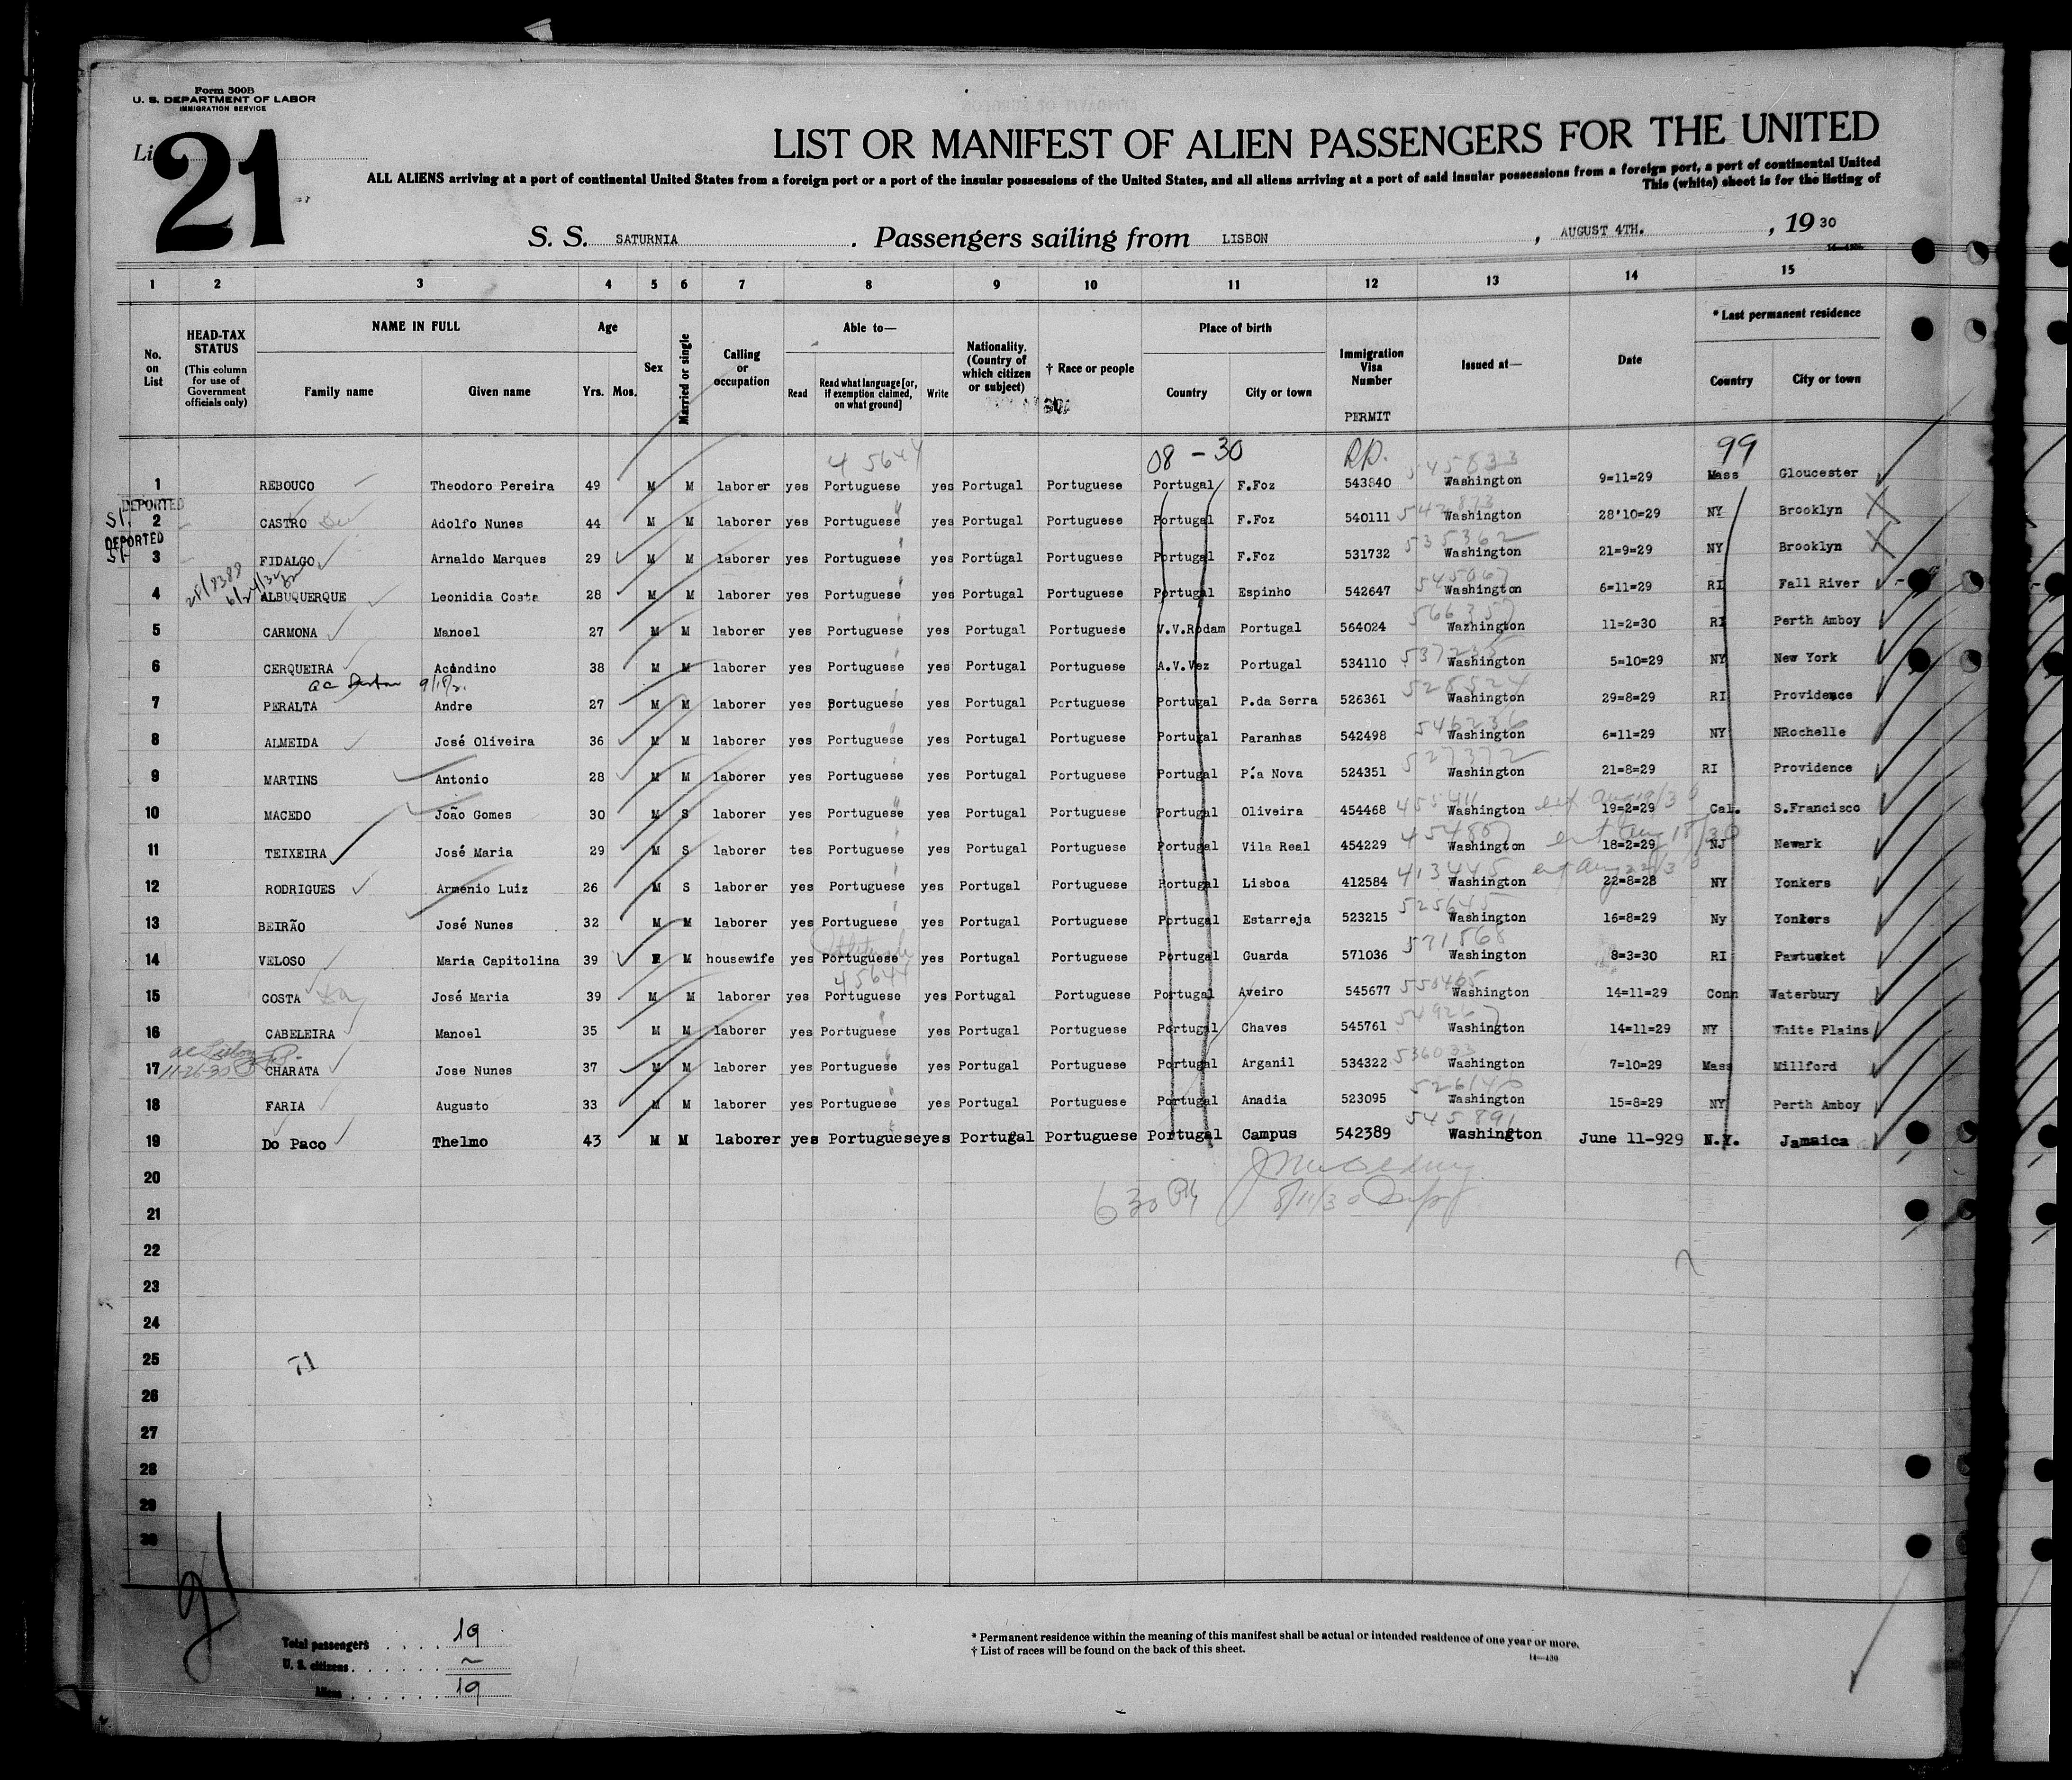 Form 500B
U. S. DEPARTMENT OF LABOR
IMMIGRATION SERVICE
21
LIST OR MANIFEST OF ALIEN PASSENGERS FOR THE UNITED
ALL ALIENS arriving at a port of continental United States from a foreign port or a port of the insular possessions of the United States, and all aliens arriving at a port of said insular possessions from a foreign port, a port of continental United
This (white) sheet is for the listing of
S. S. SATURNIA . Passengers sailing from LISBON , AUGUST 4TH. , 19 30
1 2 3 4 5 6 7 8 9 10 11 12 13 14 15
No. on List HEAD-TAX STATUS (This column for use of Government officials only) NAME IN FULL Family name Given name Age Yrs. Mos. Sex Married or single Calling or occupation Able to— Read Read what language [or, if exemption claimed, on what ground] Write Nationality. (Country of which citizen or subject) † Race or people Place of birth Country City or town Immigration Visa Number PERMIT Issued at— Date * Last permanent residence Country City or town
4 5644 08 - 30 99
1 REBOUCO Theodoro Pereira 49 M M laborer yes Portuguese yes Portugal Portuguese Portugal F.Foz 543840 Washington 9=11=29 Mass Gloucester
DEPORTED
2 CASTRO Adolfo Nunes 44 M M laborer yes Portuguese yes Portugal Portuguese Portugal F.Foz 540111 Washington 28'10=29 NY Brooklyn
DEPORTED
3 FIDALGO Arnaldo Marques 29 M M laborer yes Portuguese yes Portugal Portuguese Portugal F.Foz 531732 Washington 21=9=29 NY Brooklyn
4 ALBUQUERQUE Leonidia Costa 28 M M laborer yes Portuguese yes Portugal Portuguese Portugal Espinho 542647 Washington 6=11=29 RI Fall River
5 CARMONA Manoel 27 M M laborer yes Portuguese yes Portugal Portuguese V.V.Rodam Portugal 564024 Washington 11=2=30 RI Perth Amboy
6 CERQUEIRA Acandino 38 M M laborer yes Portuguese yes Portugal Portuguese A.V.Vez Portugal 534110 Washington 5=10=29 NY New York
7 PERALTA Andre 27 M M laborer yes Portuguese yes Portugal Portuguese Portugal P.da Serra 526361 Washington 29=8=29 RI Providence
8 ALMEIDA José Oliveira 36 M M laborer yes Portuguese yes Portugal Portuguese Portugal Paranhas 542498 Washington 6=11=29 NY NRochelle
9 MARTINS Antonio 28 M M laborer yes Portuguese yes Portugal Portuguese Portugal P.a Nova 524351 Washington 21=8=29 RI Providence
10 MACEDO João Gomes 30 M S laborer yes Portuguese yes Portugal Portuguese Portugal Oliveira 454468 Washington 19=2=29 Cal. S.Francisco
11 TEIXEIRA José Maria 29 M S laborer tes Portuguese yes Portugal Portuguese Portugal Vila Real 454229 Washington 18=2=29 NJ Newark
12 RODRIGUES Armenio Luiz 26 M S laborer yes Portuguese yes Portugal Portuguese Portugal Lisboa 412584 Washington 22=8=28 NY Yonkers
13 BEIRÃO José Nunes 32 M M laborer yes Portuguese yes Portugal Portuguese Portugal Estarreja 523215 Washington 16=8=29 Ny Yonkers
14 VELOSO Maria Capitolina 39 F M housewife yes Portuguese yes Portugal Portuguese Portugal Guarda 571036 571568 Washington 8=3=30 RI Pawtucket
15 COSTA José Maria 39 M M laborer yes Portuguese yes Portugal Portuguese Portugal Aveiro 545677 Washington 14=11=29 Conn Waterbury
16 CABELEIRA Manoel 35 M M laborer yes Portuguese yes Portugal Portuguese Portugal Chaves 545761 Washington 14=11=29 NY White Plains
17 CHARATA Jose Nunes 37 M M laborer yes Portuguese yes Portugal Portuguese Portugal Arganil 534322 Washington 7=10=29 Mass Millford
18 FARIA Augusto 33 M M laborer yes Portuguese yes Portugal Portuguese Portugal Anadia 523095 Washington 15=8=29 NY Perth Amboy
19 Do Paco Thelmo 43 M M laborer yes Portuguese yes Portugal Portuguese Portugal Campus 542389 Washington June 11-929 N.Y. Jamaica
20
21
22
23
24
25
26
27
28
29
30
71
21
Total passengers 19
U. S. citizens ~
Aliens 19
* Permanent residence within the meaning of this manifest shall be actual or intended residence of one year or more.
† List of races will be found on the back of this sheet.
14—430